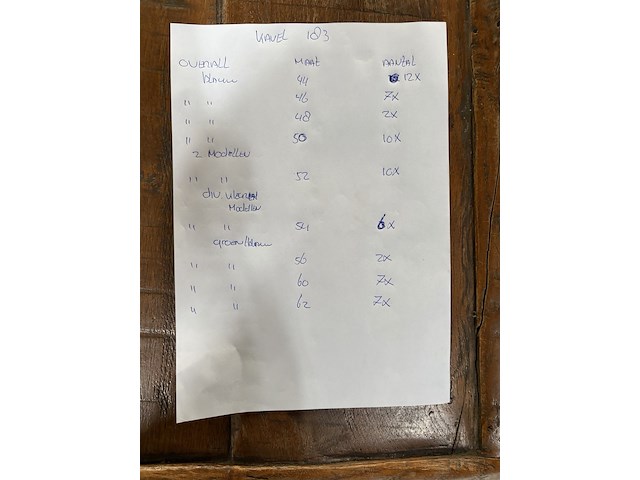 KAVEL 183
OVERALL MAAT AANTAL
blauw 44 12X
" " 46 7X
" " 48 2X
" " 50 10X
2 MODELLEN
" " 52 10X
DIV.
MODELLEN
" " 54 6X
groen/blauw
" " 56 2X
" " 60 7X
" " 62 7X